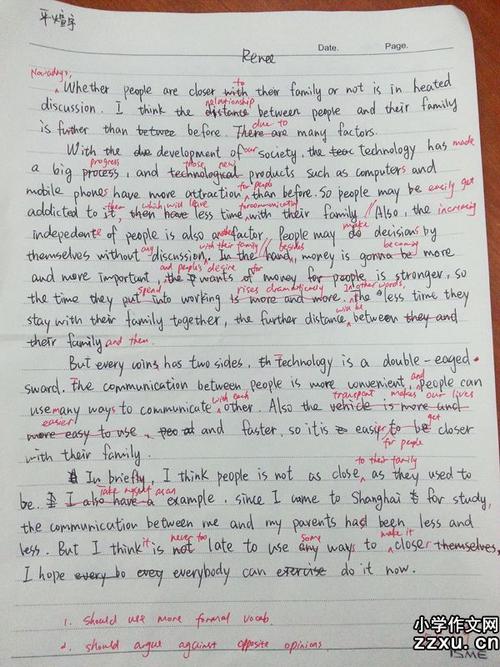 Date. Page.
Renee
Nowadays,
Whether people are closer with their family or not is in heated
to
discussion. I think the distance between people and their family
relationship
is further than before. There are many factors.
due to
With the development of society, the technology has made
our
a big process, and technological products such as computers and
progress those new
mobile phones have more attraction than before. So people may be easily get
for people
addicted to it, then have less time with their family // Also, the increasing
them which will leave
indepedente of people is also factor. People may do decisions by
make
themselves without discussion. In the hand, money is gonna be more
any with their family // besides becoming
and more important, the wants of money for people is stronger, so
and people's desire for
the time they put into working is more and more. The less time they
spend rises dramatically In other words,
stay with their family together, the further distance between they and
will be
their family and them.
But every coins has two sides. Technology is a double-edged
sward. The communication between people is more convenient, people can
and
use many ways to communicate other. Also the vehicle is more and
with each transport makes our lives
more easy to use, and faster, so it is easy to be closer
easier get
with their family.
for people
In briefly, I think people is not as close as they used to
to their family
be. I also have a example, since I came to Shanghai for study,
take myself as an
the communication between me and my parents had been less and
less. But I think is not late to use any ways to closer themselves,
it never too some make it
I hope every everybody can exercise do it now.
1. Should use more formal vocab.
2. should argue against opposite opinions.
小学作文网
zzxu.cn
ISME